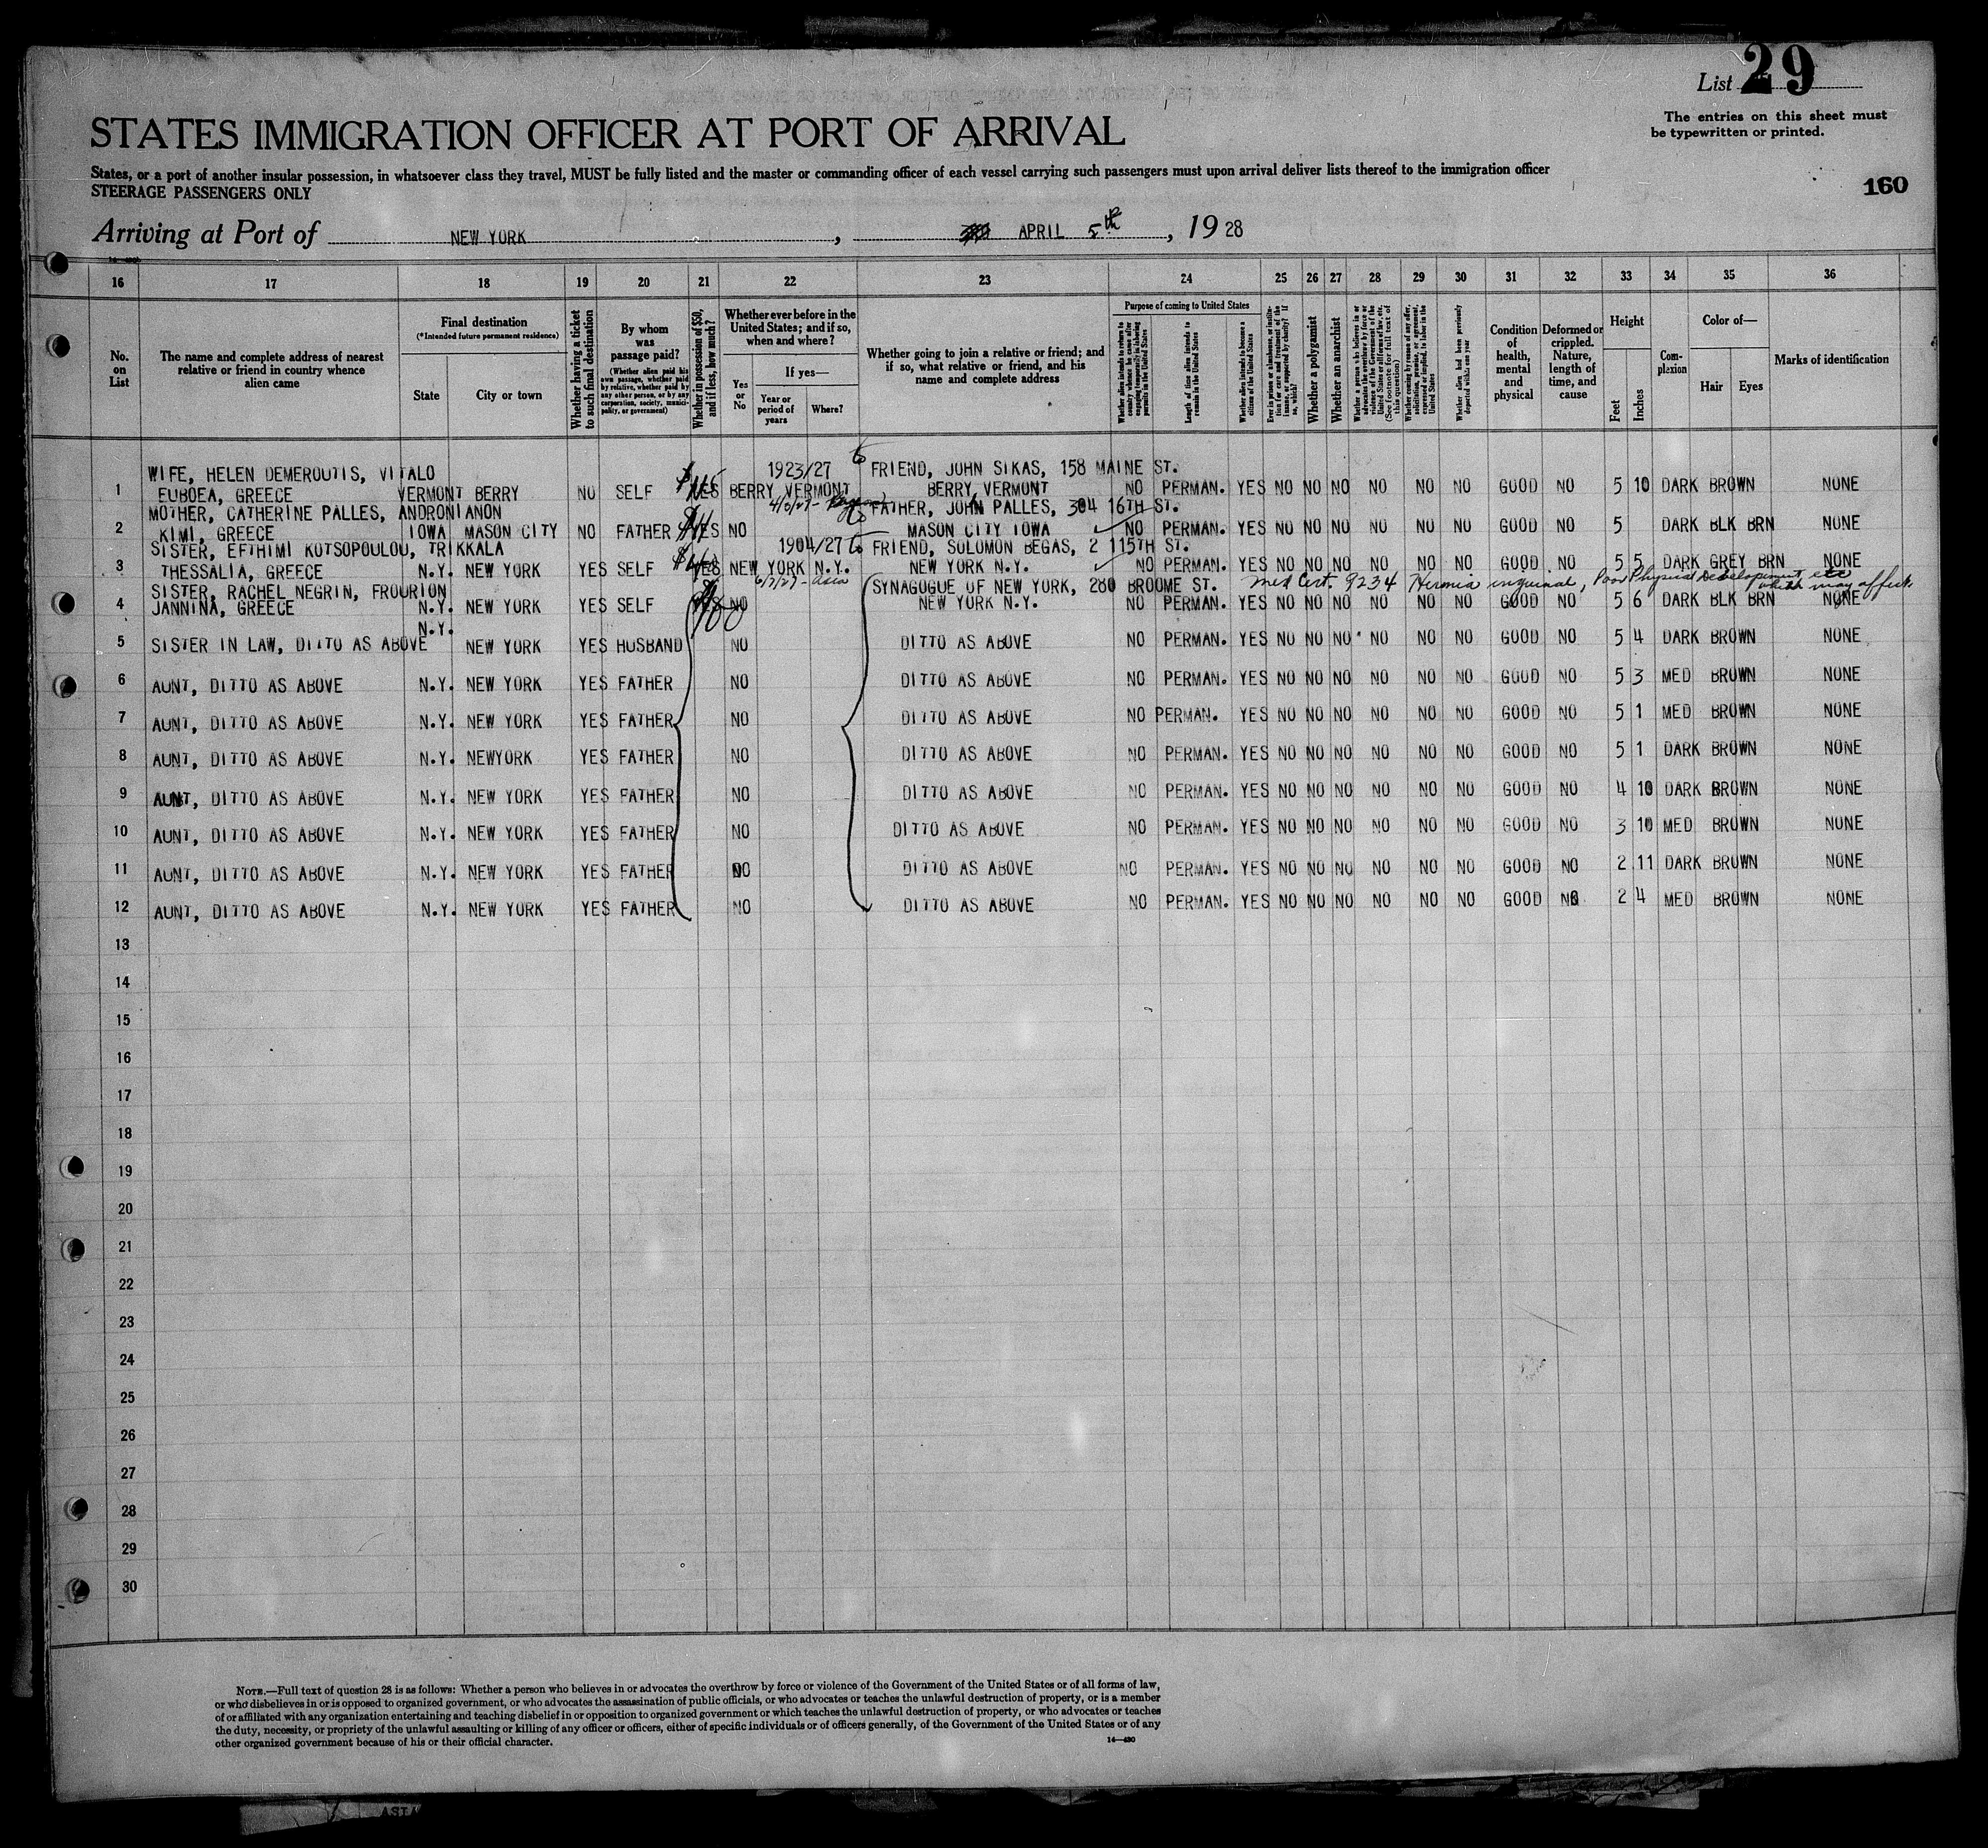 List 29
The entries on this sheet must
be typewritten or printed.
STATES IMMIGRATION OFFICER AT PORT OF ARRIVAL
States, or a port of another insular possession, in whatsoever class they travel, MUST be fully listed and the master or commanding officer of each vessel carrying such passengers must upon arrival deliver lists thereof to the immigration officer
STEERAGE PASSENGERS ONLY
160
Arriving at Port of NEW YORK, APRIL 5th, 1928
16 17 18 19 20 21 22 23 24 25 26 27 28 29 30 31 32 33 34 35 36
No. on List
The name and complete address of nearest relative or friend in country whence alien came
Final destination
(*Intended future permanent residence)
State
City or town
Whether having a ticket to such final destination
By whom was passage paid?
(Whether alien paid his own passage, whether paid by relative, whether paid by any other person, or by any corporation, society, municipality, or government)
Whether in possession of $50, and if less, how much?
Whether ever before in the United States; and if so, when and where?
Yes or No
If yes—
Year or period of years
Where?
Whether going to join a relative or friend; and if so, what relative or friend, and his name and complete address
Purpose of coming to United States
Length of time alien intends to remain in the United States
Whether alien intends to become a citizen of the United States
Whether a polygamist
Whether an anarchist
Condition of health, mental and physical
Deformed or crippled. Nature, length of time, and cause
Height
Feet
Inches
Complexion
Color of—
Hair
Eyes
Marks of identification
WIFE, HELEN DEMEROUTIS, VITALO 1923/27 FRIEND, JOHN SIKAS, 158 MAINE ST.
1 EUBOEA, GREECE VERMONT BERRY NO SELF YES BERRY VERMONT BERRY, VERMONT NO PERMAN. YES NO NO NO NO NO NO GOOD NO 5 10 DARK BROWN NONE
MOTHER, CATHERINE PALLES, ANDRONIANON FATHER, JOHN PALLES, 304 16TH ST.
2 KIMI, GREECE IOWA MASON CITY NO FATHER YES NO MASON CITY IOWA NO PERMAN. YES NO NO NO NO NO NO GOOD NO 5 DARK BLK BRN NONE
SISTER, EFTHIMI KOTSOPOULOU, TRIKKALA 1904/27 FRIEND, SOLOMON BEGAS, 2 115TH ST.
3 THESSALIA, GREECE N.Y. NEW YORK YES SELF YES NEW YORK N.Y. NEW YORK N.Y. NO PERMAN. YES NO NO NO NO NO NO GOOD NO 5 5 DARK GREY BRN NONE
SISTER, RACHEL NEGRIN, FROURION SYNAGOGUE OF NEW YORK, 280 BROOME ST. Med Cert. 9234 Hernia inguinal, Poor Physical Development, etc which may affect
4 JANNINA, GREECE N.Y. NEW YORK YES SELF NO NEW YORK N.Y. NO PERMAN. YES NO NO NO NO NO NO GOOD NO 5 6 DARK BLK BRN NONE
N.Y.
5 SISTER IN LAW, DITTO AS ABOVE NEW YORK YES HUSBAND NO DITTO AS ABOVE NO PERMAN. YES NO NO NO NO NO NO GOOD NO 5 4 DARK BROWN NONE
6 AUNT, DITTO AS ABOVE N.Y. NEW YORK YES FATHER NO DITTO AS ABOVE NO PERMAN. YES NO NO NO NO NO NO GOOD NO 5 3 MED BROWN NONE
7 AUNT, DITTO AS ABOVE N.Y. NEW YORK YES FATHER NO DITTO AS ABOVE NO PERMAN. YES NO NO NO NO NO NO GOOD NO 5 1 MED BROWN NONE
8 AUNT, DITTO AS ABOVE N.Y. NEWYORK YES FATHER NO DITTO AS ABOVE NO PERMAN. YES NO NO NO NO NO NO GOOD NO 5 1 DARK BROWN NONE
9 AUNT, DITTO AS ABOVE N.Y. NEW YORK YES FATHER NO DITTO AS ABOVE NO PERMAN. YES NO NO NO NO NO NO GOOD NO 4 10 DARK BROWN NONE
10 AUNT, DITTO AS ABOVE N.Y. NEW YORK YES FATHER NO DITTO AS ABOVE NO PERMAN. YES NO NO NO NO NO NO GOOD NO 3 10 MED BROWN NONE
11 AUNT, DITTO AS ABOVE N.Y. NEW YORK YES FATHER NO DITTO AS ABOVE NO PERMAN. YES NO NO NO NO NO NO GOOD NO 2 11 DARK BROWN NONE
12 AUNT, DITTO AS ABOVE N.Y. NEW YORK YES FATHER NO DITTO AS ABOVE NO PERMAN. YES NO NO NO NO NO NO GOOD NO 2 4 MED BROWN NONE
13
14
15
16
17
18
19
20
21
22
23
24
25
26
27
28
29
30
NOTE.—Full text of question 28 is as follows: Whether a person who believes in or advocates the overthrow by force or violence of the Government of the United States or of all forms of law,
or who disbelieves in or is opposed to organized government, or who advocates the assassination of public officials, or who advocates or teaches the unlawful destruction of property, or is a member
of or affiliated with any organization entertaining and teaching disbelief in or opposition to organized government or which teaches the unlawful destruction of property, or who advocates or teaches
the duty, necessity, or propriety of the unlawful assaulting or killing of any officer or officers, either of specific individuals or of officers generally, of the Government of the United States or of any
other organized government because of his or their official character.
14—430